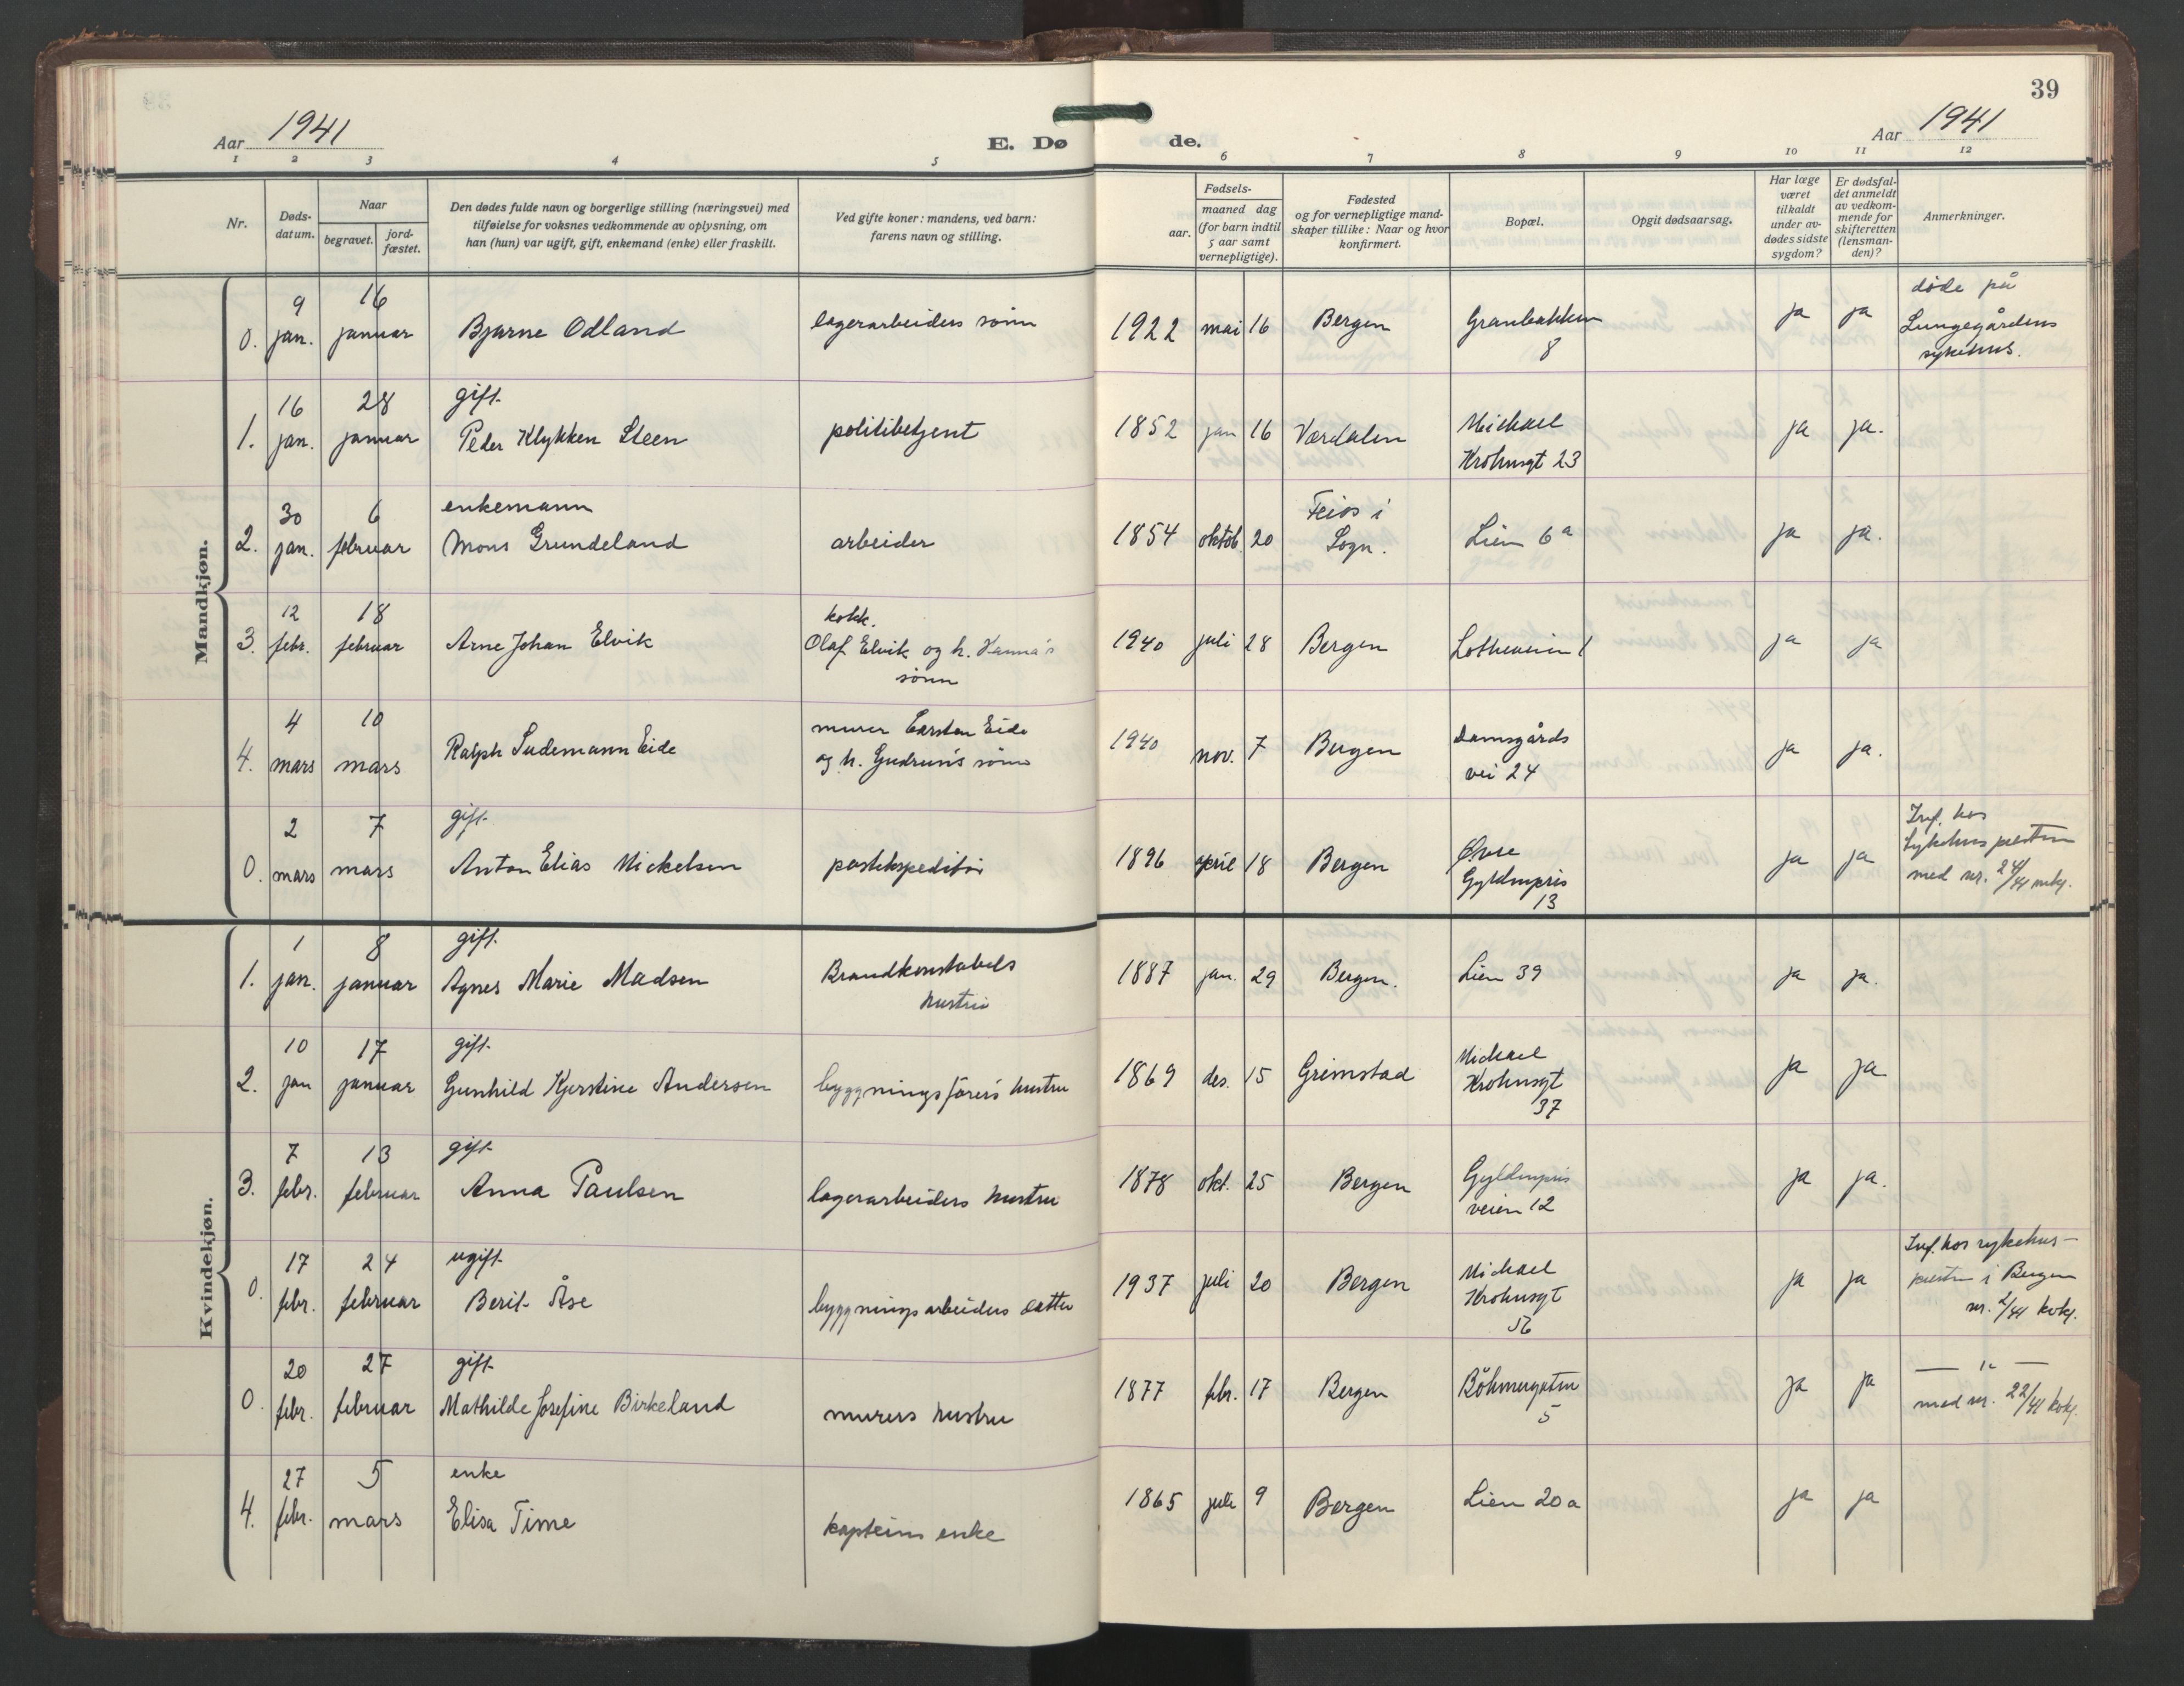 39
Aar 1941
E. Dø
de.
Aar 1941
1 2 3 4 5 6 7 8 9 10 11 12
Nr.
Døds-
datum.
Naar
begravet.
jord-
fæstet.
Den dødes fulde navn og borgerlige stilling (næringsvei) med
tilføielse for voksnes vedkommende av oplysning, om
han (hun) var ugift, gift, enkemand (enke) eller fraskilt.
Ved gifte koner: mandens, ved barn:
farens navn og stilling.
Fødsels-
aar.
maaned dag
(for barn indtil
5 aar samt
vernepligtige).
Fødested
og for vernepligtige mand-
skaper tillike: Naar og hvor
konfirmert.
Bopæl.
Opgit dødsaarsag.
Har læge
været
tilkaldt
under av-
dødes sidste
sygdom?
Er dødsfal-
det anmeldt
av vedkom-
mende for
skifteretten
(lensman-
den)?
Anmerkninger.
Mandkjøn.
9 16 døde på
0. jan. januar Bjarne Odland lagerarbeiders sønn 1922 mai 16 Bergen Granbakken ja ja Lungegårdens
8 sykehus.
16 28 gift. Michael
1. jan. januar Peder Klykken Steen politibetjent 1852 jan 16 Værdalen Krohnsgt 23 ja ja.
30 6 enkemann Feios i
2. jan. februar Mons Grundeland arbeider 1854 oktob. 20 Sogn. Lien 6a ja ja.
12 18 kokk.
3. febr. februar Arne Johan Elvik Olaf Elvik og h. Hanna's 1940 juli 28 Bergen Lotheveien 1 ja ja
sønn
4 10 murer Carsten Eide Damsgårds
4. mars mars Ralph Ludemann Eide og h. Gudrun's sønn 1940 nov. 7 Bergen vei 24 ja ja.
2 7 gift. Øvre Inf. hos
0. mars mars Anton Elias Mickelsen postekspeditør 1896 april 18 Bergen Gyldenpris ja ja Sykehuspresten
13 med nr. 24/41 mkj.
Kvindekjøn.
1 8 gift. Brandkonstabels
1. jan. januar Agnes Marie Madsen hustru 1887 jan. 29 Bergen. Lien 39 ja ja.
10 17 gift. Michael
2. jan januar Gunhild Kjerstine Andersen byggningsførers hustru 1869 des. 15 Grimstad Krohnsgt ja ja
37
7 13 gift. Gyldenpris
3. febr. februar Anna Paulsen lagerarbeiders hustru 1878 okt. 25 Bergen veien 12 ja ja.
17 24 ugift. Michael Inf. hos sykehus-
0. febr. februar Berit Åse byggningsarbeiders datter 1937 juli 20 Bergen Krohnsgt ja ja presten i Bergen
56 nr. 2/41 kvkj.
20 27 gift. — " —
0. febr. februar Mathilde Josefine Birkeland murers hustru 1877 febr. 17 Bergen Böhmergaten ja ja med nr. 22/41 kvkj.
5
27 5 enke
4. febr. mars Elisa Time kapteins enke 1865 juli 9 Bergen Lien 20a ja ja